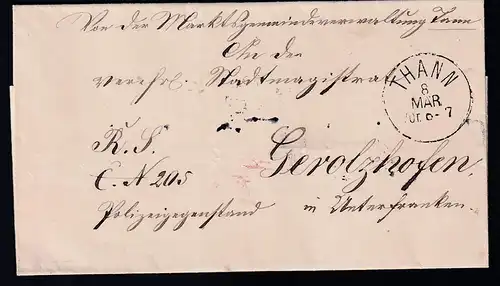 Von der Marktsgemeindeverwaltung Tann
An den
verehrl. Stadtmagistrat
THANN
8
MÄR
6-7
R. S.
E. N 205
Gerolzhofen,
Polizeigegenstand
in Unterfranken.